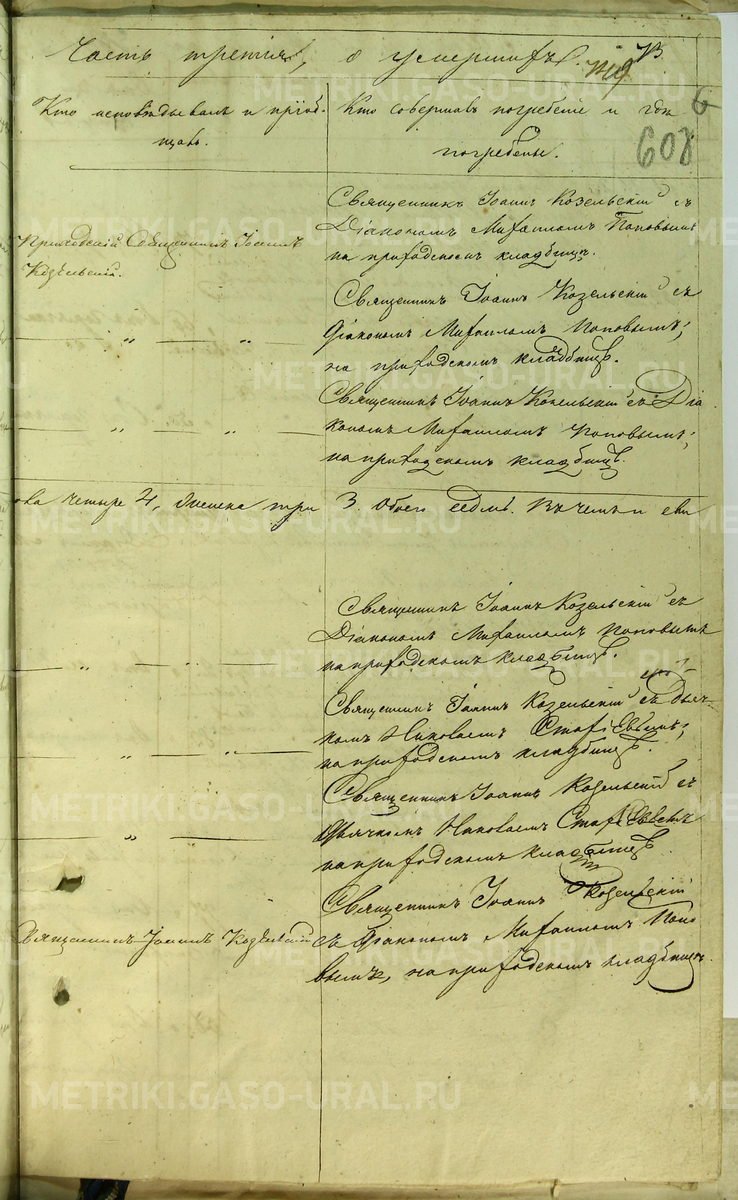 Часть третія, о умершихъ.
608
Кто исповѣдывалъ и пріоб-
щалъ.
Кто совершалъ погребеніе и гдѣ
погребены.
Приходскій Священникъ Іоаннъ
Козельскій.
Священникъ Іоаннъ Козельскій съ
Діакономъ Михаиломъ Поповымъ
на приходскомъ кладбищѣ.
— „ — „ —
Священникъ Іоаннъ Козельскій съ
Діакономъ Михаиломъ Поповымъ;
на приходскомъ кладбищѣ.
— „ — „ —
Священникъ Іоаннъ Козельскій съ Діа
кономъ Михаиломъ Поповымъ;
на приходскомъ кладбищѣ.
четыре 4, женска три 3. Обоего седмь. Въ
— „ — „ —
Священникъ Іоаннъ Козельскій съ
Діакономъ Михаиломъ Поповымъ
на приходскомъ кладбищѣ.
— „ — „ —
Священникъ Іоаннъ Козельскій съ Дьяч-
комъ Николаемъ
на приходскомъ кладбищѣ.
— „ —
Священникъ Іоаннъ Козельскій съ
Дьячкомъ Николаемъ
на приходскомъ кладбищѣ.
Священникъ Іоаннъ Козельскій
Священникъ Іоаннъ Козельскій
съ Діакономъ Михаиломъ Попо-
вымъ, на приходскомъ кладбищѣ.
METRIKI.GASO-URAL.RU